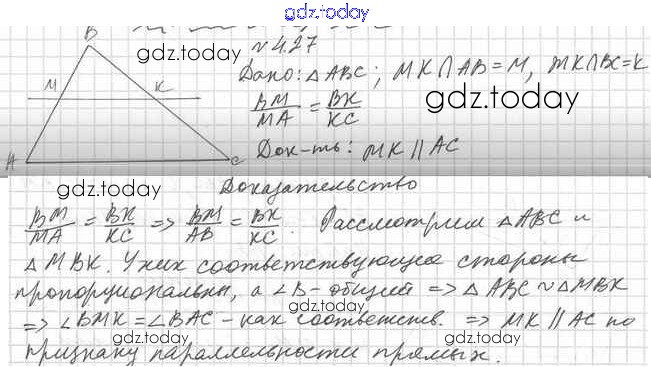 gdz.today
№ 4.27
B
gdz.today
Дано: △ABC; MK∩AB=M, MK∩BC=K
M K
BM/MA = BK/KC
gdz.today
Док-ть: MK || AC
A C
gdz.today
Доказательство
BM/MA = BK/KC => BM/AB = BK/KC. Рассмотрим △ABC и
△MBK. У них соответствующие стороны
пропорциональны, а ∠B - общий => △ABC ~ △MBK
gdz.today
=> ∠BMK = ∠BAC - как соответств. => MK || AC по
gdz.today
gdz.today
признаку параллельности прямых.